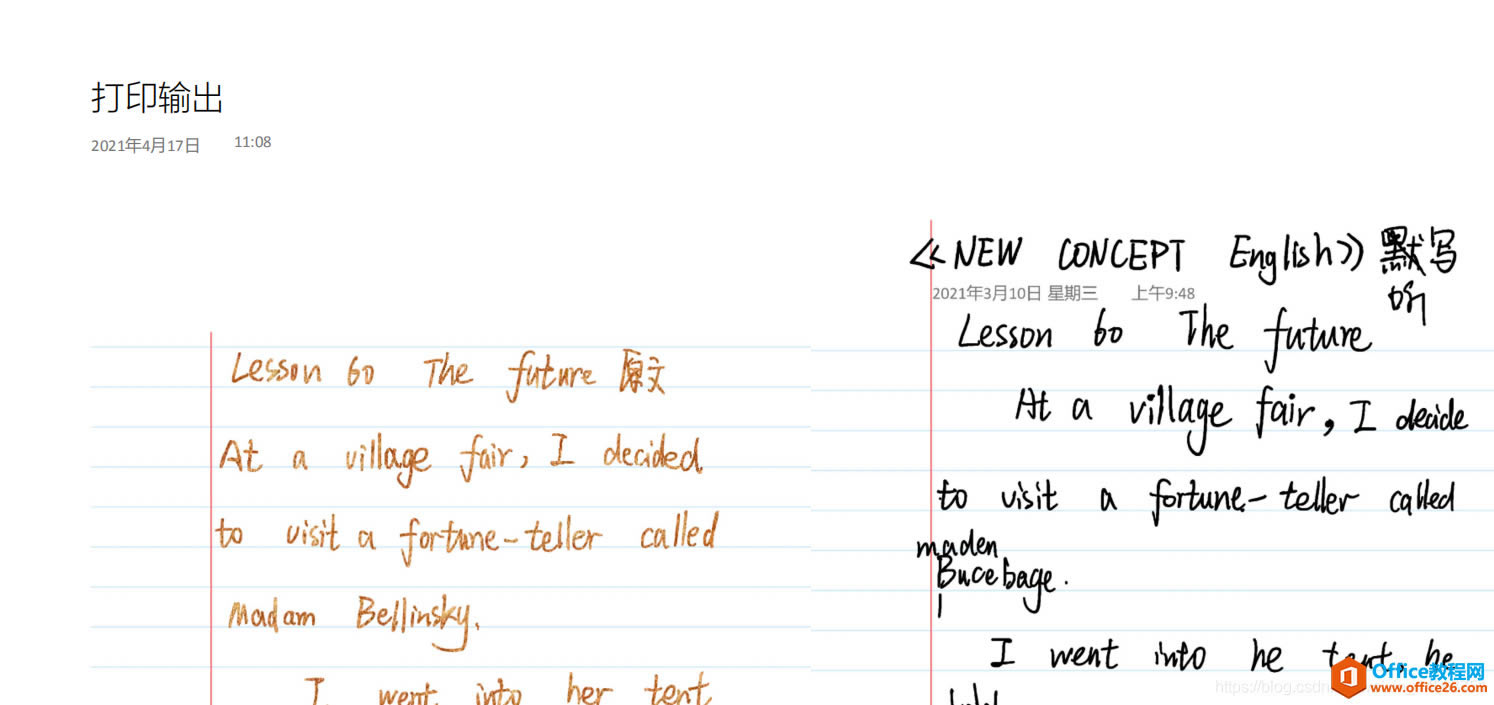 打印输出
2021年4月17日 11:08
Lesson 60 The future 原文
At a village fair, I decided
to visit a fortune-teller called
Madam Bellinsky.
I went into her tent
《NEW CONCEPT English》默写
听
2021年3月10日 星期三 上午9:48
Lesson 60 The future
At a village fair, I decide
to visit a fortune-teller called
maden
Bucebage.
I went into he tent, he
https://blog.csdn
Office教程网
www.office26.com